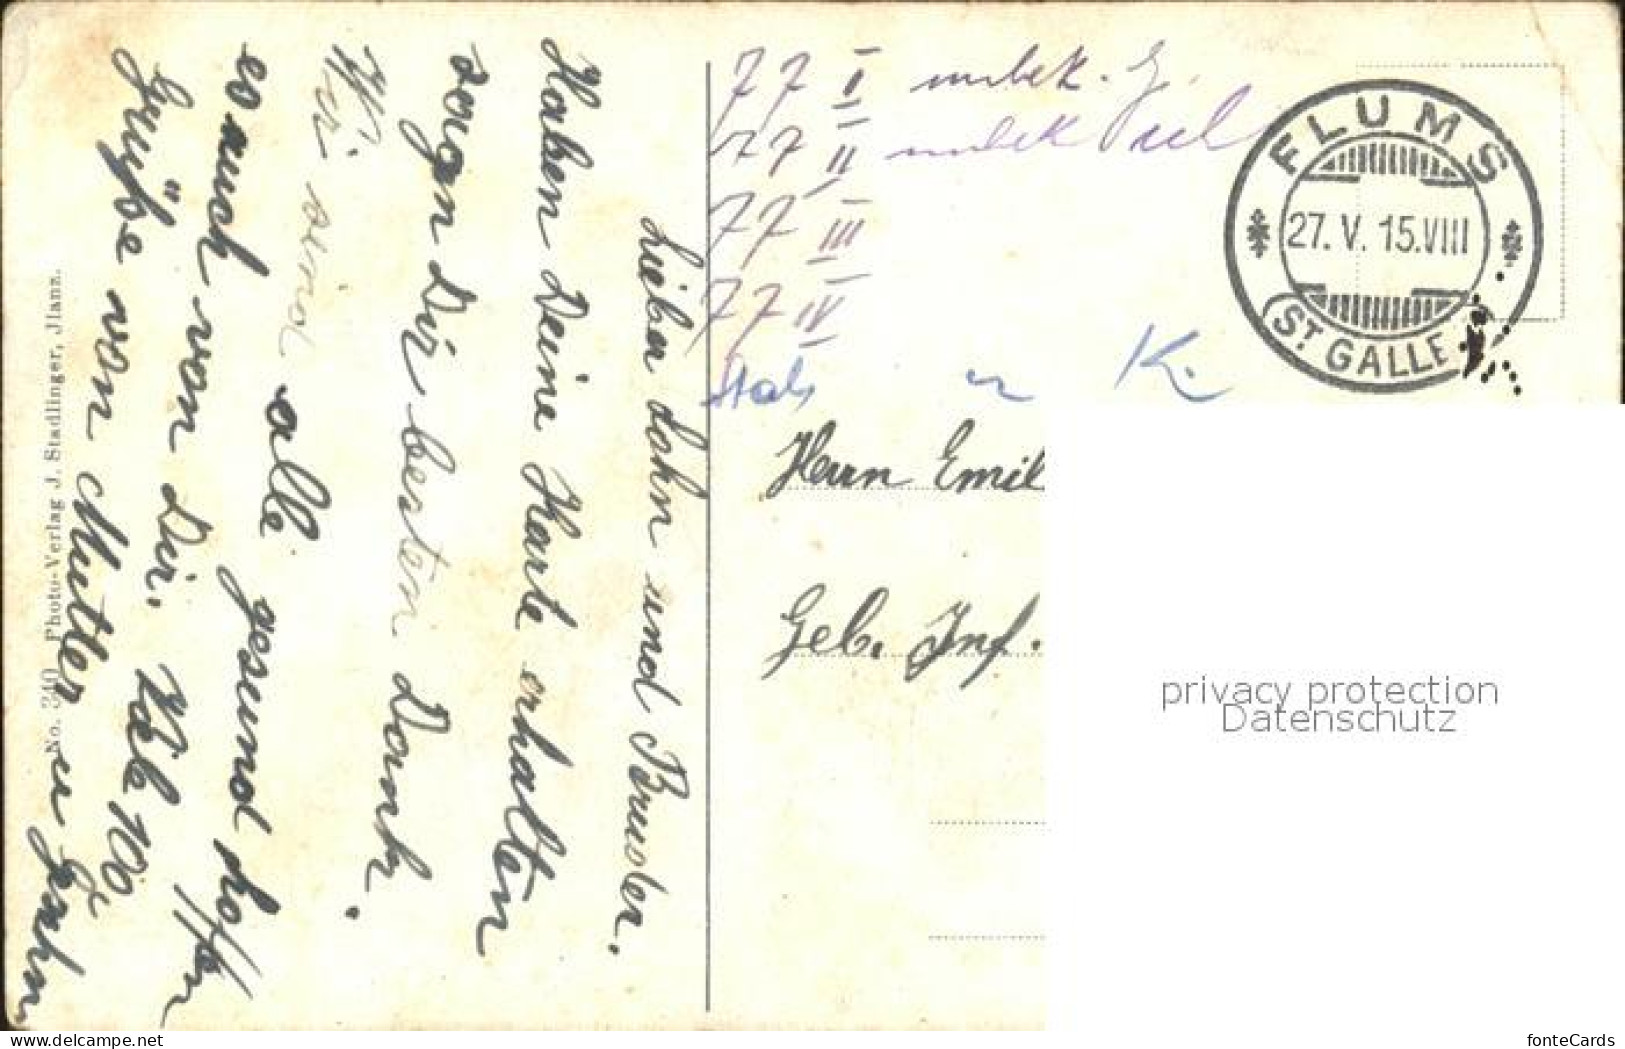 Lieber Sohn und Bruder.
Haben Deine Karte erhalten
sagen Dir besten Dank.
Wir sind alle gesund hoffen
es auch von Dir. Viele 100
Grüße von Mutter u
No. 340 Photo-Verlag J. Stadlinger, Jlanz.
77 I unbek.
77 II unbek
77 III
77 IV
Stab K.
FLUMS
27. V. 15.VIII
(ST. GALLEN)
Herrn Emil
Geb. Inf.
privacy protection
Datenschutz
www.delcampe.net
fonteCards